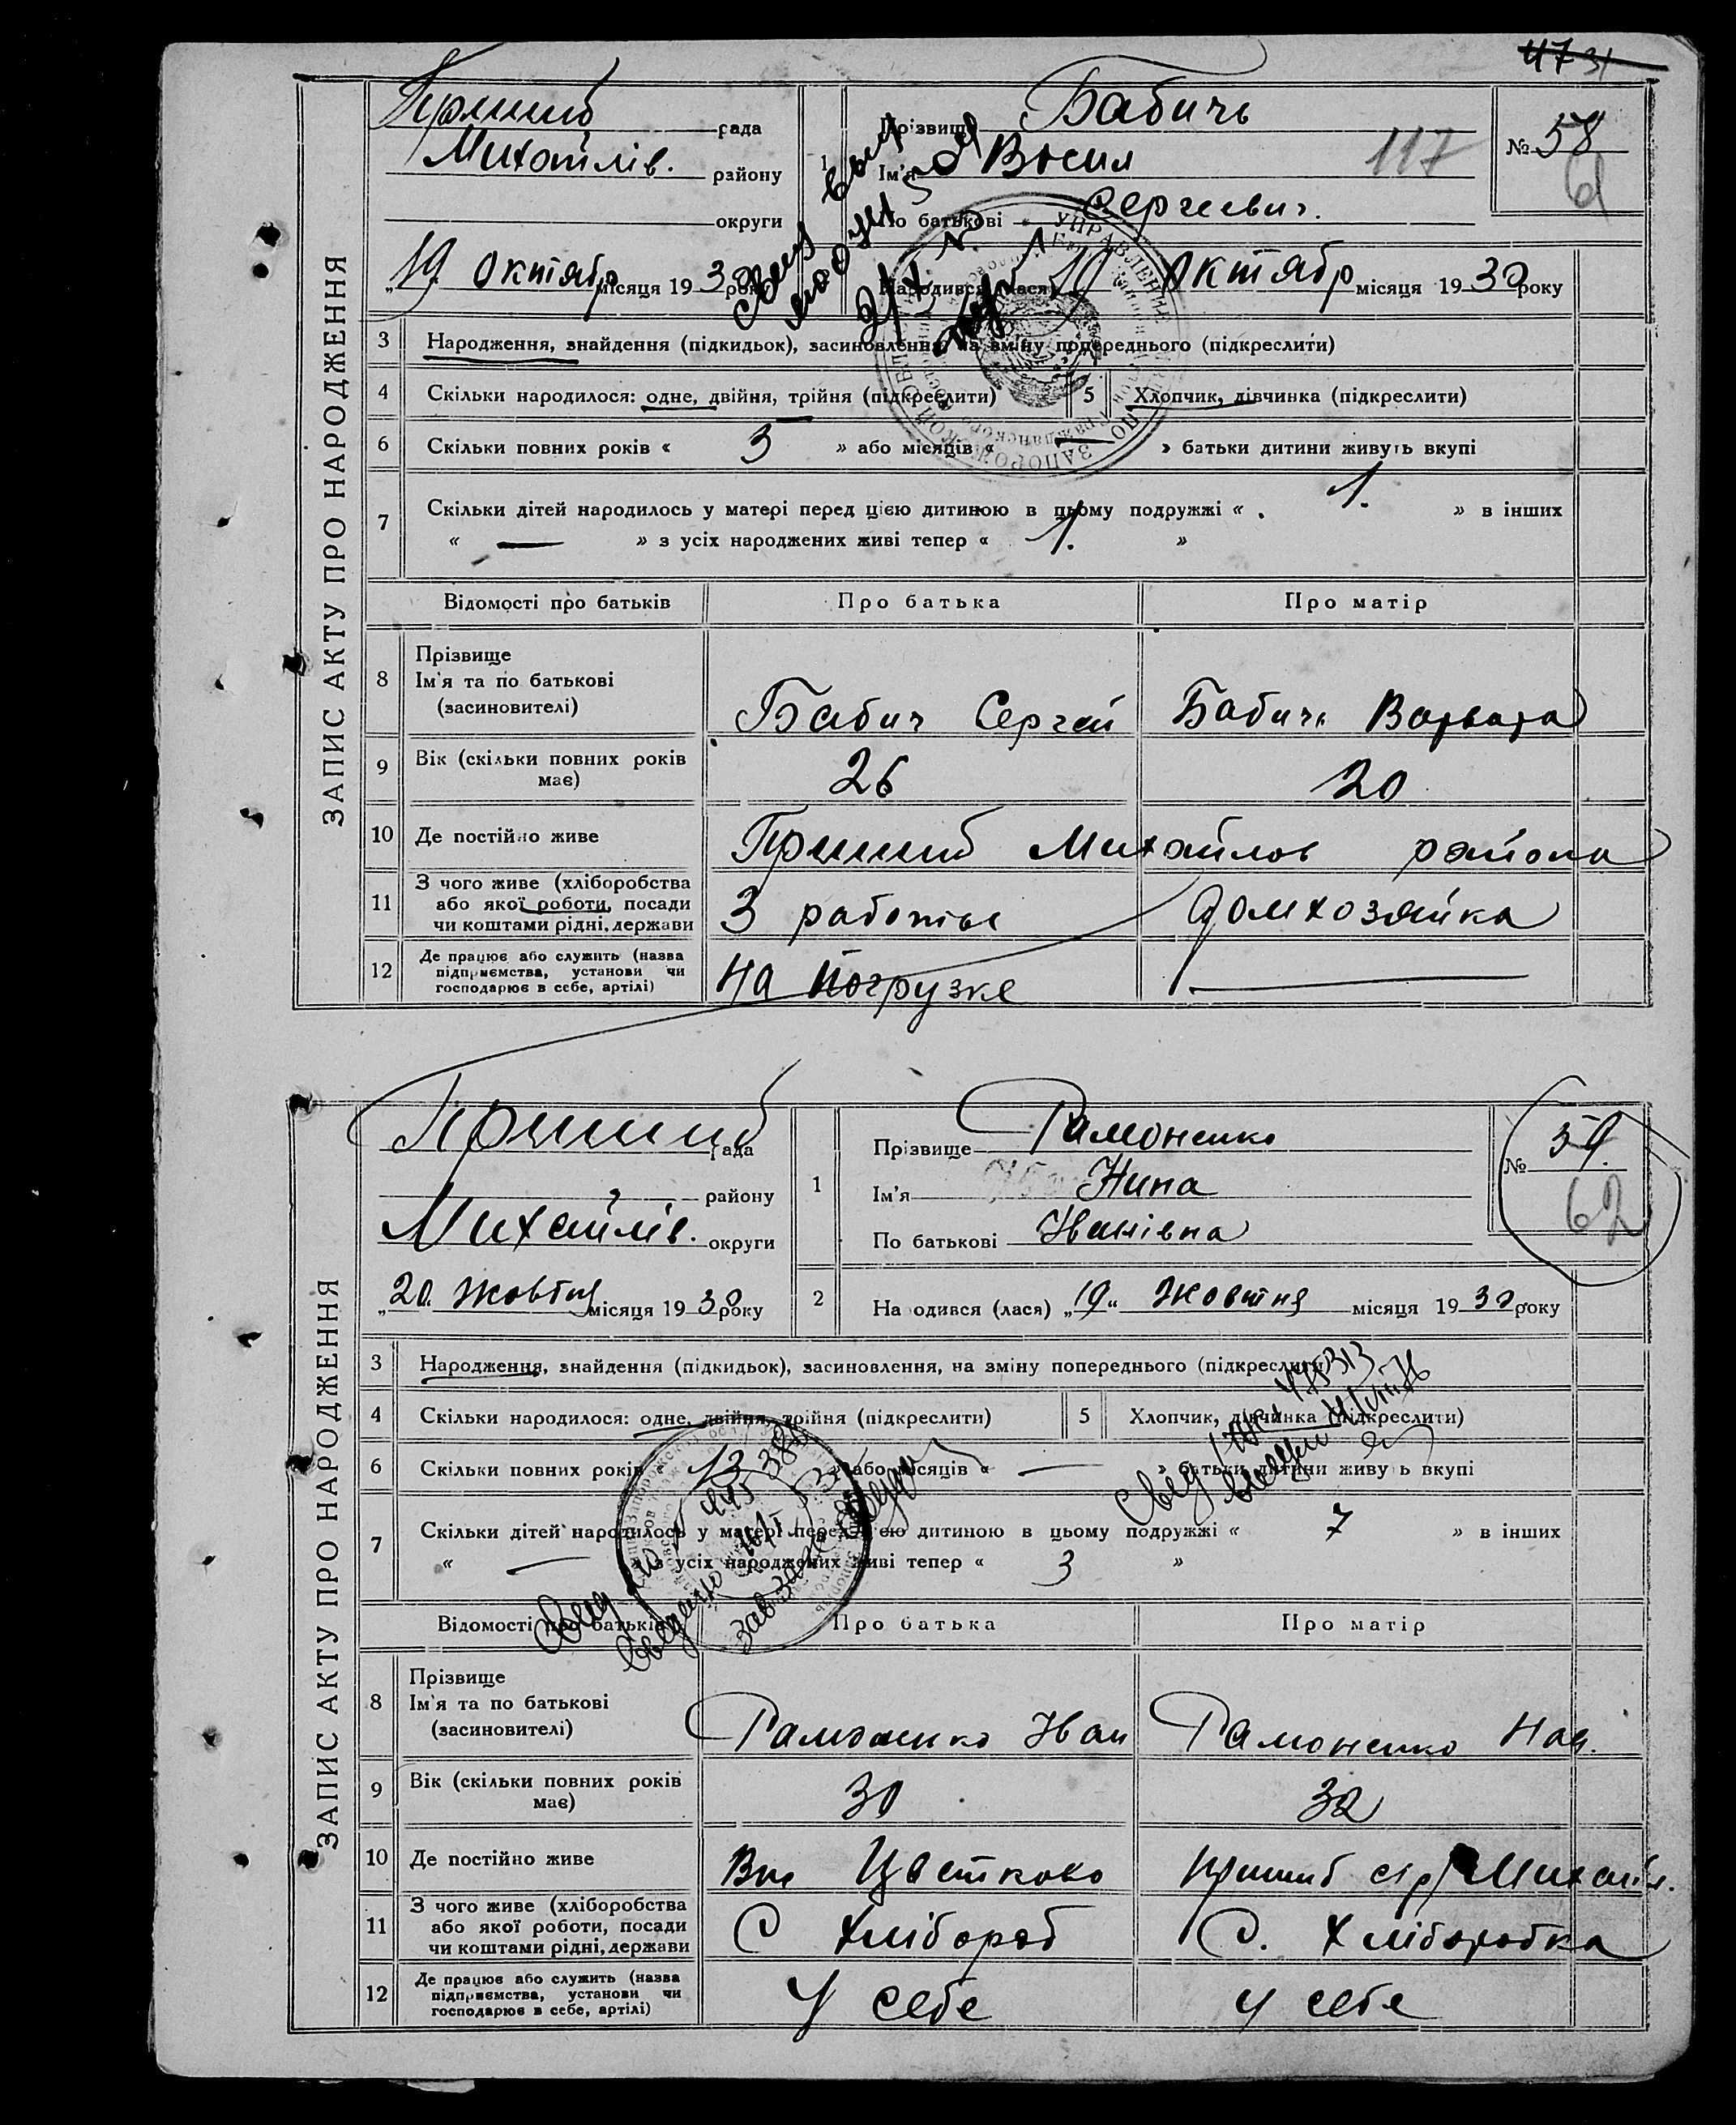 47 31
ЗАПИС АКТУ ПРО НАРОДЖЕННЯ
Пришиб рада
Михайлів. району
округи
19 Октябр місяця 19 30 року
1
Прізвище Бабичь
Ім'я Васил 117
По батькові Сергеевич.
№ 58
61
Народився (лася) 10 Октябр місяця 19 30 року
3 Народження, знайдення (підкидьок), засиновлення, на зміну попереднього (підкреслити)
4 Скільки народилося: одне, двійня, трійня (підкреслити) 5 Хлопчик, дівчинка (підкреслити)
6 Скільки повних років « 3 » або місяців « — » батьки дитини живуть вкупі
7 Скільки дітей народилось у матері перед цією дитиною в цьому подружжі « 1. » в інших
« — » з усіх народжених живі тепер « 1. »
Відомості про батьків Про батька Про матір
8 Прізвище
Ім'я та по батькові
(засиновителі) Бабич Сергей Бабичь Варвара
9 Вік (скільки повних років має) 26 20
10 Де постійно живе Пришиб Михайлов района
11 З чого живе (хліборобства
або якої роботи, посади
чи коштами рідні, держави З работы Домхозяйка
12 Де працює або служить (назва
підприємства, установи чи
господарює в себе, артілі) на погрузке —
ЗАПИС АКТУ ПРО НАРОДЖЕННЯ
Пришиб рада
району
Михайлів. округи
„20 Жовтня місяця 19 30 року
1
Прізвище Рамоненко
Ім'я Нина
По батькові Іванівна
№ 59.
62
2 Народився (лася) „19" Жовтня місяця 19 30 року
3 Народження, знайдення (підкидьок), засиновлення, на зміну попереднього (підкреслити)
4 Скільки народилося: одне, двійня, трійня (підкреслити) 5 Хлопчик, дівчинка (підкреслити)
6 Скільки повних років « 13 » або місяців « — » батьки дитини живуть вкупі
7 Скільки дітей народилось у матері перед цією дитиною в цьому подружжі « 7 » в інших
« — » з усіх народжених живі тепер « 3 »
Відомості про батьків Про батька Про матір
8 Прізвище
Ім'я та по батькові
(засиновителі) Рамоненко Іван Рамоненко Нат.
9 Вік (скільки повних років має) 30 32
10 Де постійно живе Цветково Пришиб с/р Михайл.
11 З чого живе (хліборобства
або якої роботи, посади
чи коштами рідні, держави С Хлібороб С. Хліборобка
12 Де працює або служить (назва
підприємства, установи чи
господарює в себе, артілі) У себе у себе